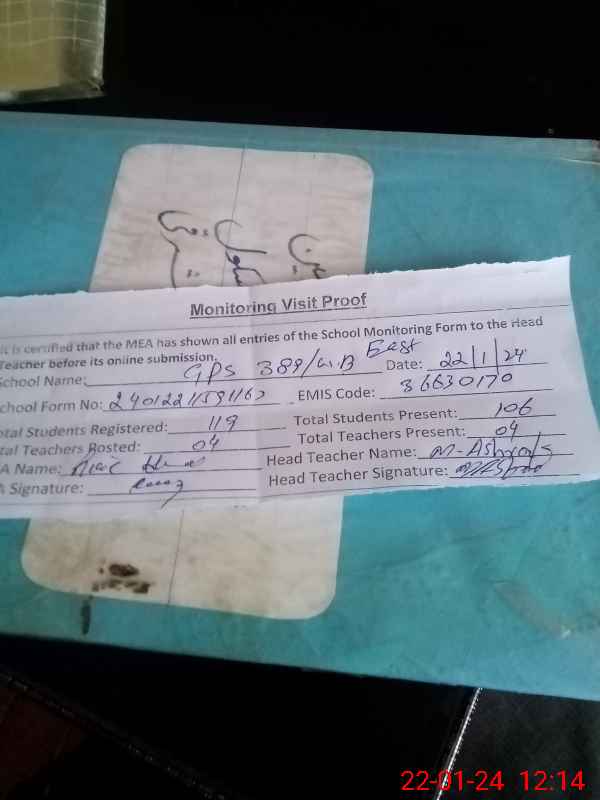 Monitoring Visit Proof
it is certified that the MEA has shown all entries of the School Monitoring Form to the Head
Teacher before its online submission.
School Name: GPS 389/W.B East Date: 22/1/24
chool Form No: EMIS Code: 36630170
otal Students Registered: 119 Total Students Present: 106
tal Teachers Posted: 04 Total Teachers Present: 04
A Name: Head Teacher Name: M-Ashraf
A Signature: Head Teacher Signature:
22-01-24 12:14